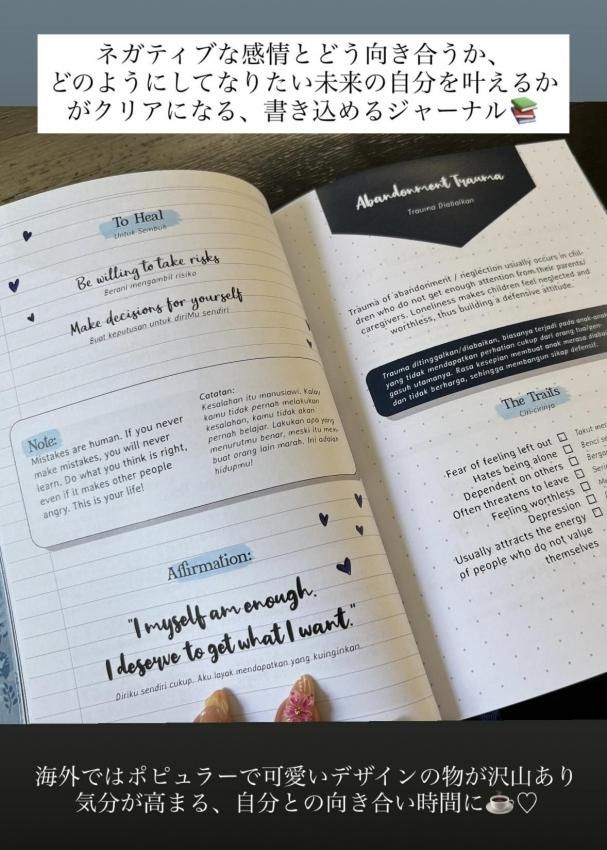 ネガティブな感情とどう向き合うか、
どのようにしてなりたい未来の自分を叶えるか
がクリアになる、書き込めるジャーナル📚
To Heal
Untuk Sembuh
Be willing to take risks
Berani mengambil risiko
Make decisions for yourself
Buat keputusan untuk diriMu sendiri
Note:
Mistakes are human. If you never
make mistakes, you will never
learn. Do what you think is right,
even if it makes other people
angry. This is your life!
Catatan:
Kesalahan itu manusiawi. Kalau
kamu tidak pernah melakukan
kesalahan, kamu tidak akan
pernah belajar. Lakukan apa yang
menurutmu benar, meski itu mem-
buat orang lain marah. Ini adalah
hidupmu!
Affirmation:
"I myself am enough.
I deserve to get what I want."
Diriku sendiri cukup. Aku layak mendapatkan yang kuinginkan.
Abandonment Trauma
Trauma Diabaikan
Trauma of abandonment / neglection usually occurs in chil-
dren who do not get enough attention from their parents/
caregivers. Loneliness makes children feel neglected and
worthless, thus building a defensive attitude.
Trauma ditinggalkan/diabaikan, biasanya terjadi pada anak-anak
yang tidak mendapatkan perhatian cukup dari orang tua/pen-
gasuh utamanya. Rasa kesepian membuat anak merasa
dan tidak berharga, sehingga membangun sikap defensif.
The Traits
Ciri-cirinya
Fear of feeling left out
Takut
Hates being alone
Benci
Dependent on others
Often threatens to leave
Feeling worthless
Depression
Usually attracts the energy
of people who do not value
themselves
海外ではポピュラーで可愛いデザインの物が沢山あり
気分が高まる、自分との向き合い時間に☕♡